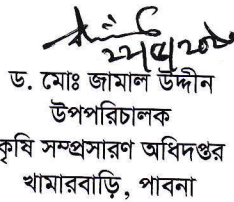 ড. মোঃ জামাল উদ্দীন
উপপরিচালক
কৃষি সম্প্রসারণ অধিদপ্তর
খামারবাড়ি, পাবনা